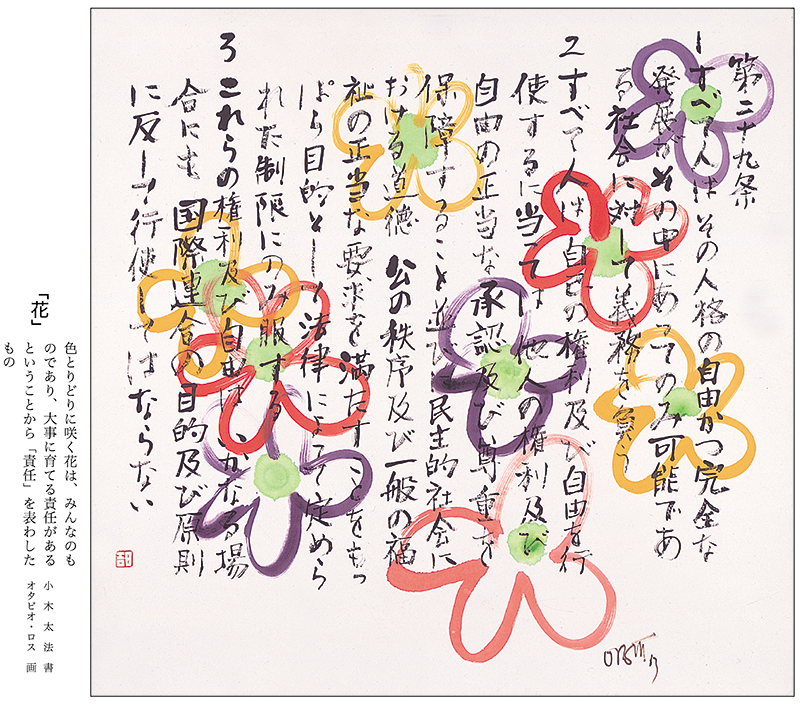 第二十九条
1 すべて人はその人格の自由かつ完全な
発展がその中にあってのみ可能であ
る社会に対して義務を負う
2 すべて人は自己の権利及び自由を行
使するに当っては 他人の権利及び
自由の正当な承認及び尊重を
保障すること並びに民主的社会に
おける道徳 公の秩序及び一般の福
祉の正当な要求を満たすことをもっ
ぱら目的として法律によって定めら
れた制限にのみ服する
3 これらの権利及び自由は いかなる場
合にも 国際連合の目的及び原則
に反して行使してはならない
「花」
色とりどりに咲く花は、みんなのも
のであり、大事に育てる責任がある
ということから「責任」を表わした
もの
小木太法 書
オタビオ・ロス 画